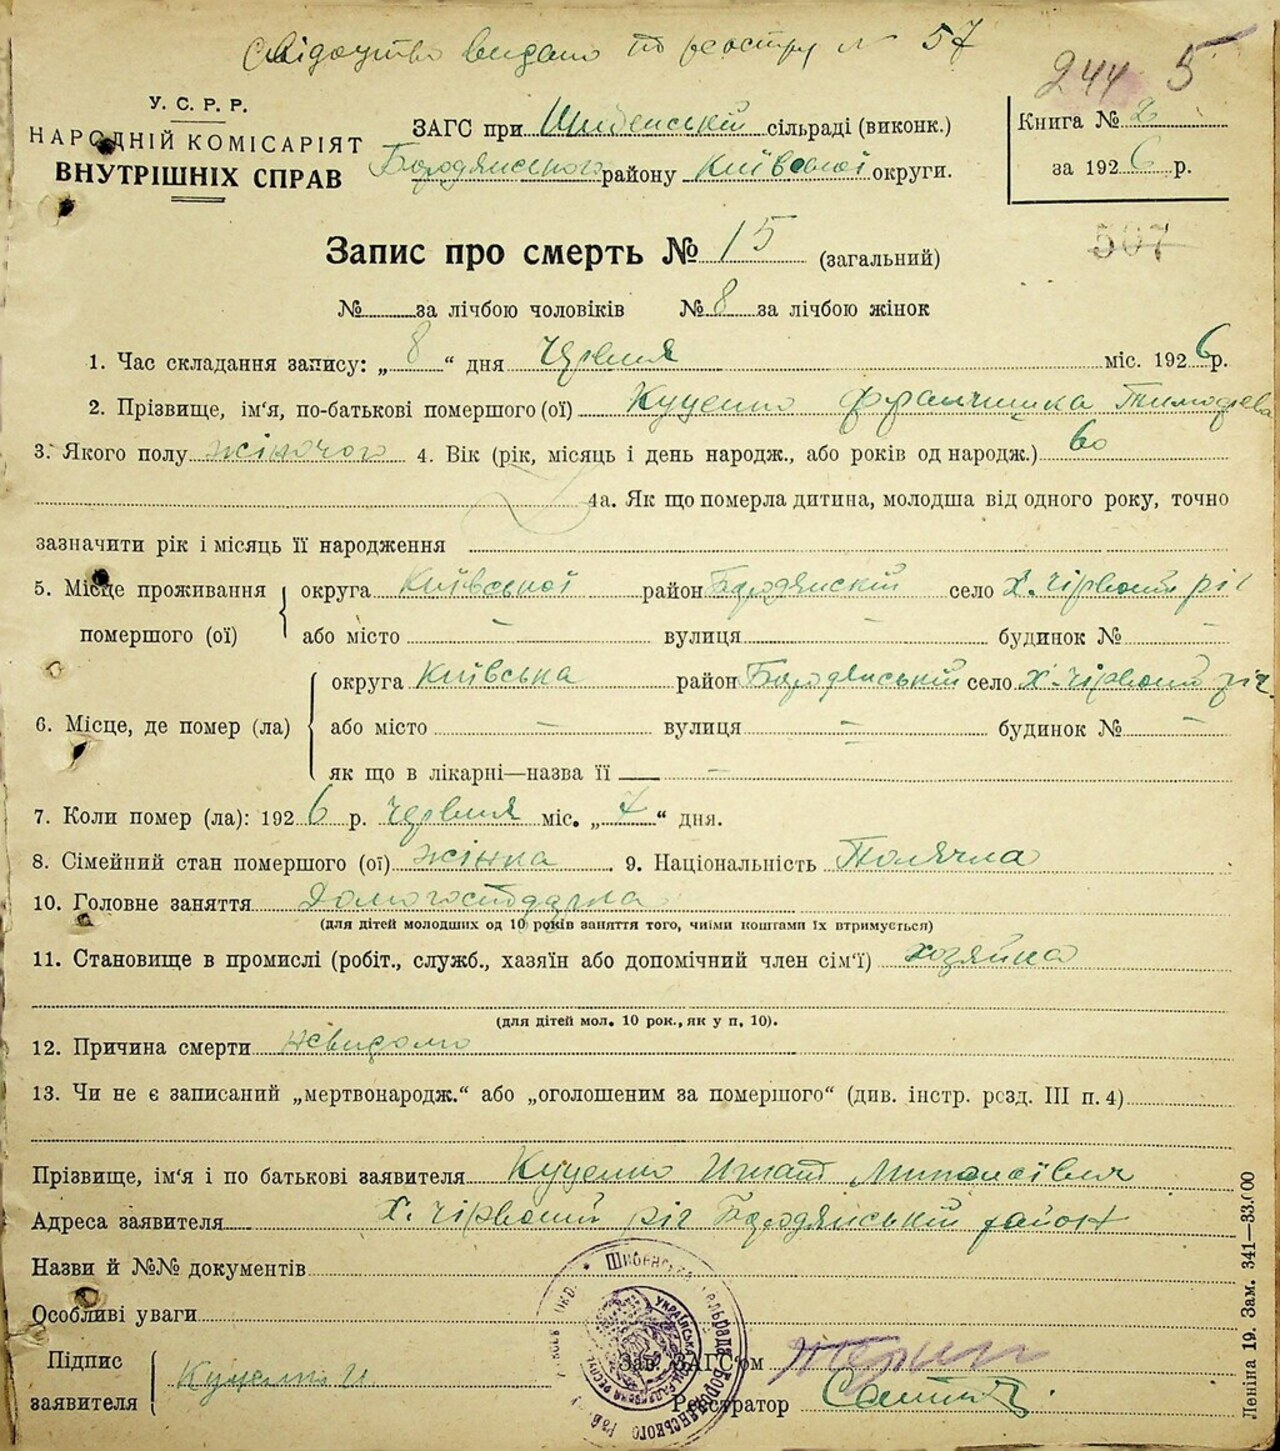 Свідоцтво видано по реєстру N 57
244 5
У. С. Р. Р.
НАРОДНІЙ КОМІСАРІЯТ
ВНУТРІШНІХ СПРАВ
ЗАГС при Шибенській сільраді (виконк.)
Бородянського району Київської округи.
Книга № 2
за 1926 р.
507
Запис про смерть № 15 (загальний)
№ за лічбою чоловіків № 8 за лічбою жінок
1. Час складання запису: „ 8 “ дня Червня міс. 1926 р.
2. Прізвище, ім‘я, по-батькові помершого (ої) Куценко Францишка Тимофієва
3. Якого полу жіночого 4. Вік (рік, місяць і день народж., або років од народж.) 60
4а. Як що померла дитина, молодша від одного року, точно
зазначити рік і місяць її народження
5. Місце проживання помершого (ої)
округа Київської район Бородянскій село Х. Чірвоний ріг
або місто — вулиця — будинок № —
6. Місце, де помер (ла)
округа Київська район Бородянській село Х. Чірвоний ріг
або місто — вулиця — будинок № —
як що в лікарні—назва її —
7. Коли помер (ла): 1926 р. Червня міс. „ 7 “ дня.
8. Сімейний стан помершого (ої) жінка 9. Національність Полячка
10. Головне заняття Домогосподарка
(для дітей молодших од 10 років заняття того, чиїми коштами їх втримується)
11. Становище в промислі (робіт., служб., хазяїн або допомічний член сім‘ї) хозяйка
(для дітей мол. 10 рок., як у п. 10).
12. Причина смерти невидомо
13. Чи не є записаний „мертвонародж.“ або „оголошеним за помершого“ (див. інстр. розд. III п. 4)
Прізвище, ім‘я і по батькові заявителя Куценко Игнат
Адреса заявителя Х. Чірвоний ріг Бородянській район
Назви й №№ документів
Особливі уваги
Підпис заявителя Куценко И
Зав. ЗАГС‘ом
Реєстратор
Шибенська сільрада Бородянського
УКРАЇНСЬКА
Леніна 19. Зам. 341—33.000